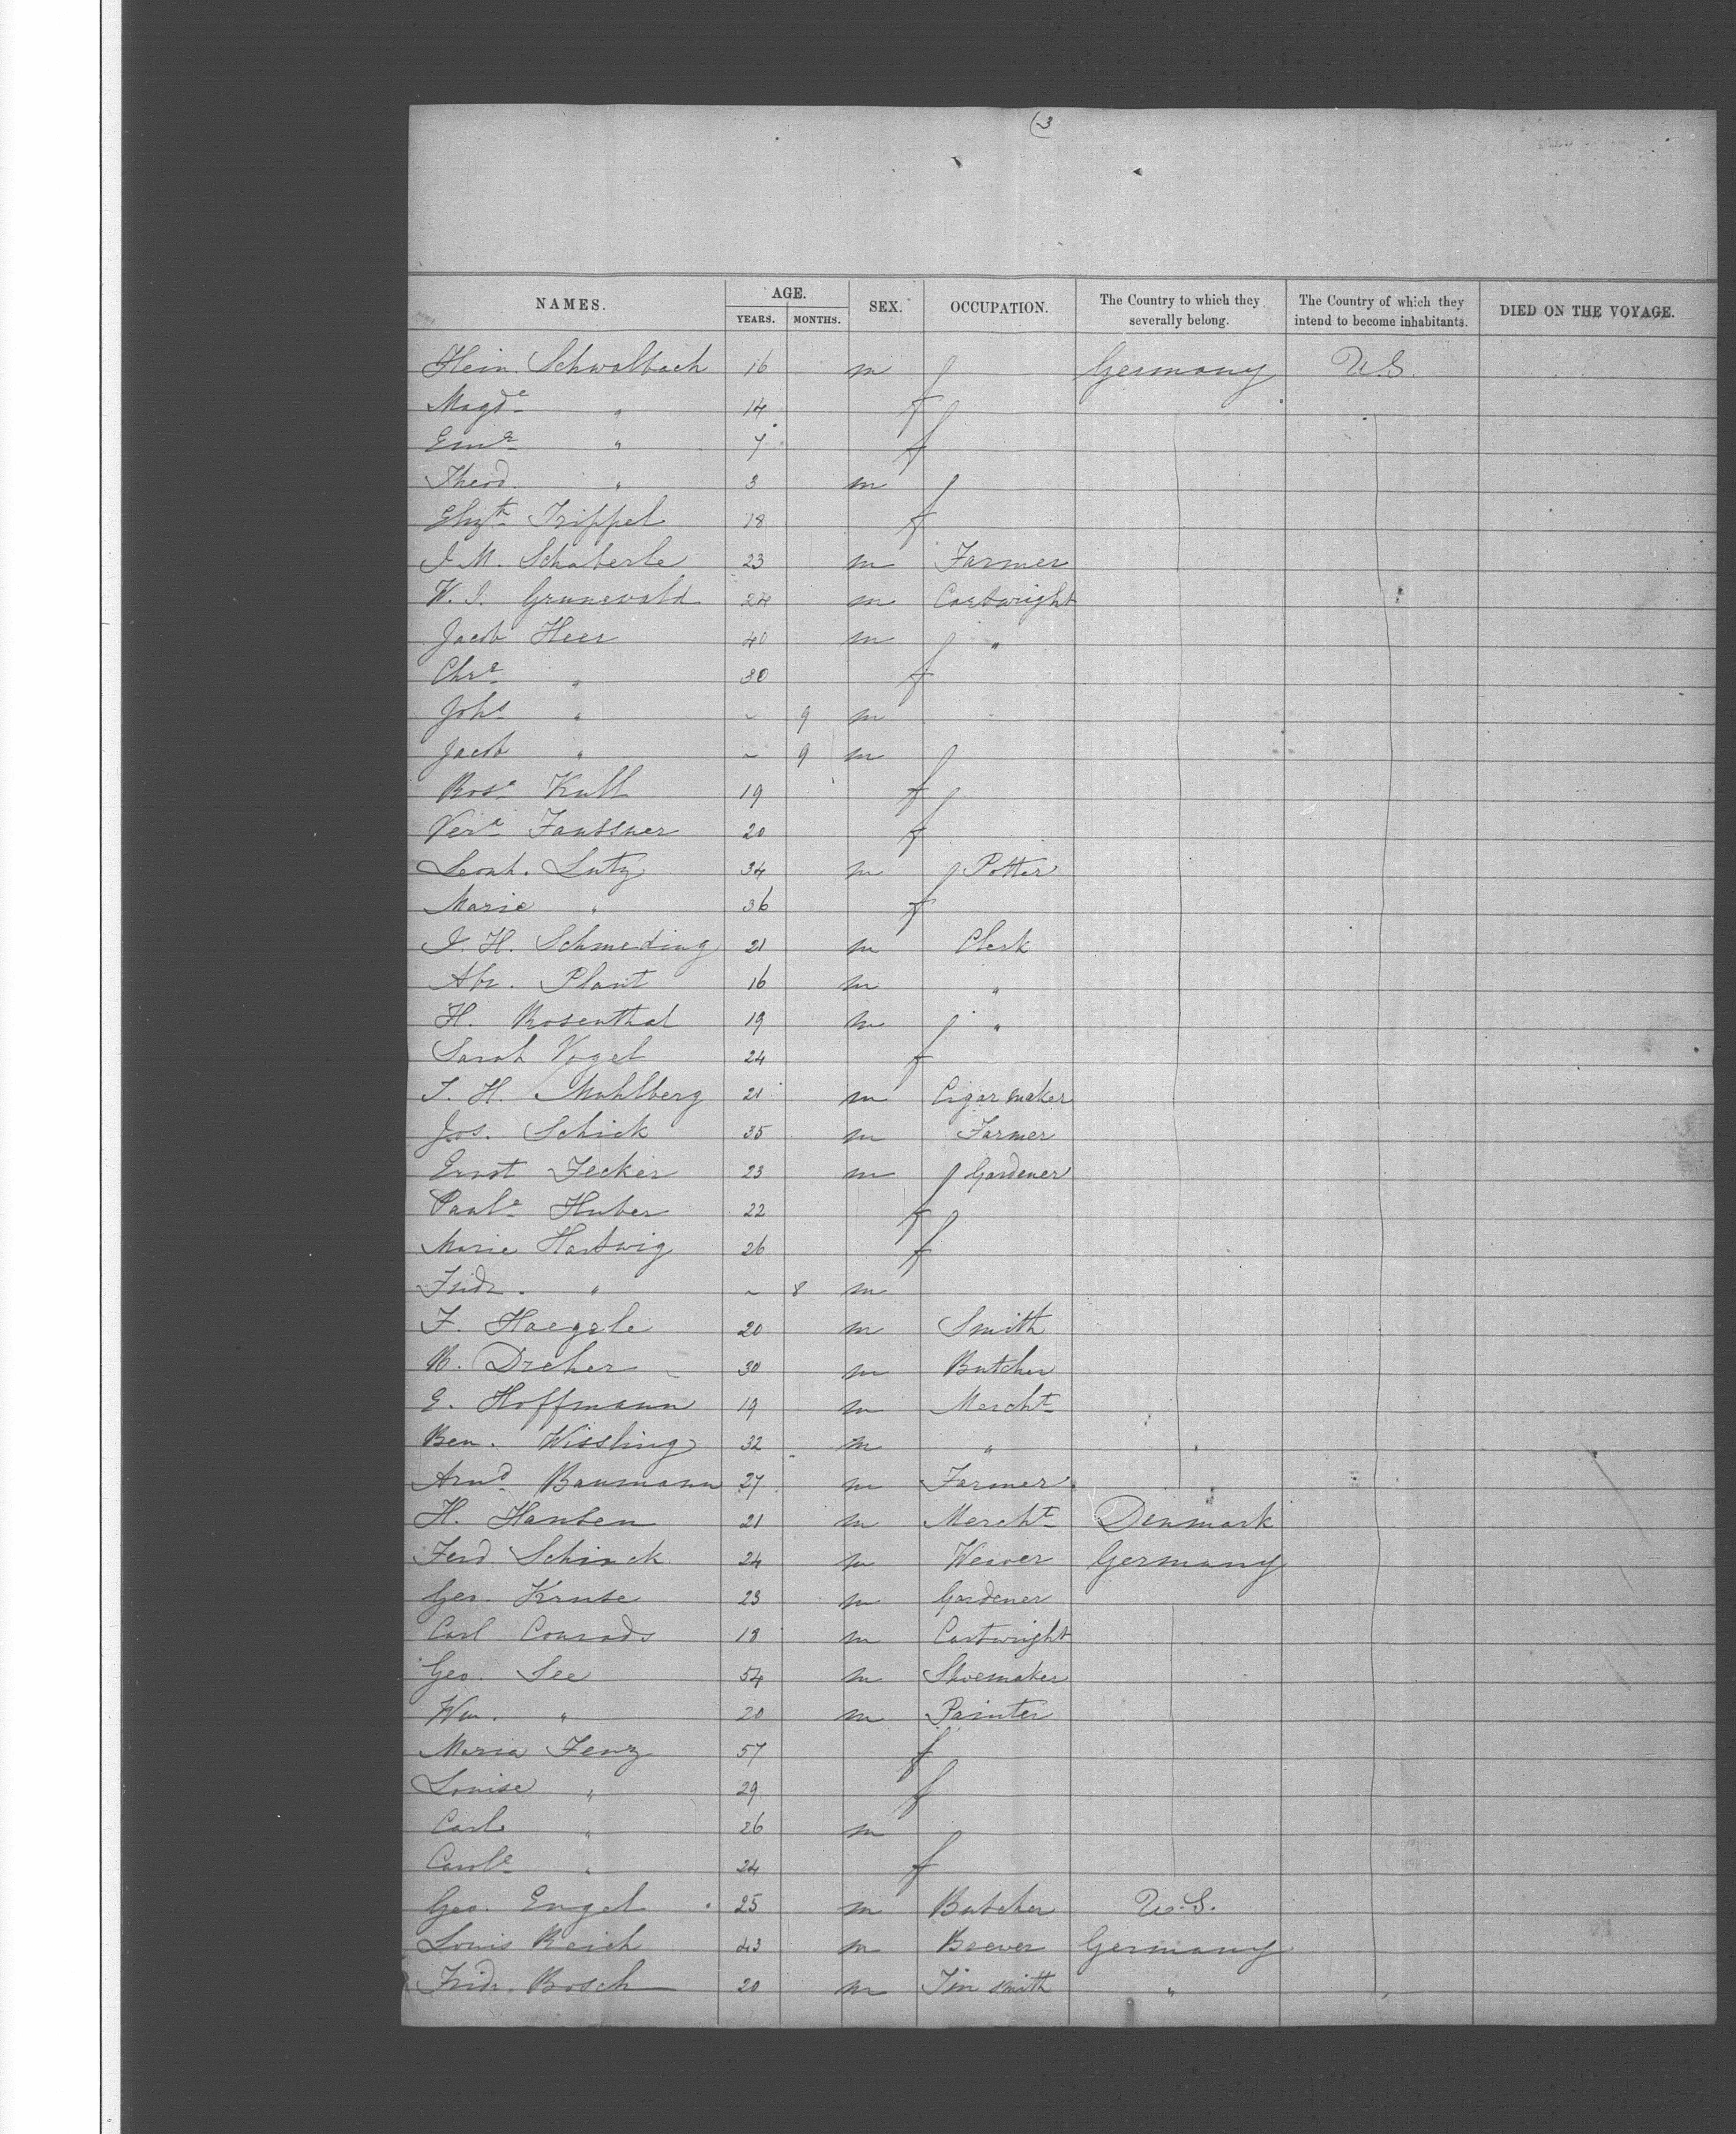 (3
NAMES. AGE. YEARS. MONTHS. SEX. OCCUPATION. The Country to which they severally belong. The Country of which they intend to become inhabitants. DIED ON THE VOYAGE.
Hein. Schwalbach 16 m Germany U.S.
Magde " 14 f
Eme " 7 f
Theod. " 3 m
Elizth Trippel 18 f
J. M. Schaberle 23 m Farmer
W. J. Grunewald 24 m Cartwright
Jacob Heer 40 m "
Chre " 30 f
Johs " ~ 9 m
Jacob " ~ 9 m
Rose Kull 19 f
Vere Faussner 20 f
Leonh. Lutz 34 m Potter
Marie " 36 f
J. H. Schmeding 21 m Clerk
Abr. Plaut 16 m "
H. Rosenthal 19 m "
Sarah Vogel 24 f
J. H. Mahlberg 21 m Cigar maker
Jos. Schick 35 m Farmer
Ernst Fecker 23 m Gardener
Paule Huber 22 f
Marie Hartwig 26 f
Fridr. " ~ 8 m
F. Haegele 20 m Smith
R. Dreher 30 m Butcher
E. Hoffmann 19 m Mercht
Ben. Wissling 32 m "
Arnd Baumann 27 m Farmer
H. Hansen 21 m Mercht Denmark
Ferd Schinck 24 m Weaver Germany
Geo. Kruse 23 m Gardener
Carl Conrads 18 m Cartwright
Geo. See 54 m Shoemaker
Wm. " 20 m Painter
Maria Fenz 57 f
Louise " 29 f
Carl " 26 m
Carole " 24 f
Geo. Engel 25 m Butcher U.S.
Louis Reich 43 m Brewer Germany
Fridr. Bosch 20 m Tin smith "